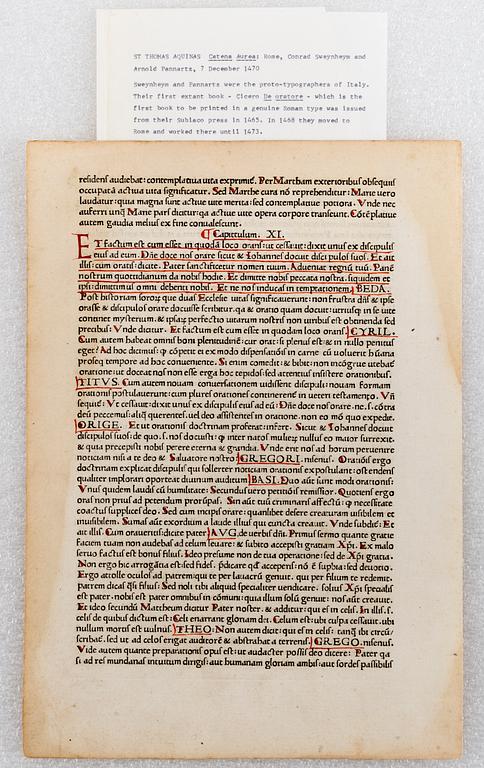 ST THOMAS AQUINAS Catena Aurea: Rome, Conrad Sweynheym and
Arnold Pannartz, 7 December 1470
Sweynheym and Pannartz were the proto-typographers of Italy.
Their first extant book - Cicero De oratore - which is the
first book to be printed in a genuine Roman type was issued
from their Subiaco press in 1465. In 1468 they moved to
Rome and worked there until 1473.
residens audiebat: contemplatiua uita exprimit. Per Martham exterioribus obsequiis
occupata actiua uita significatur. Sed Marthe cura nō reprehenditur: Marie uero
laudatur: quia magna sunt actiue uite merita: sed contemplatiue potiora. Vnde nec
auferri unq Marie pars dicitur: qa actiue uite opera corpore transeunt. Cōtēplatiue
autem gaudia melius ex fine conualescunt.
Capitulum. XI.
ET factum est cum esset in quodā loco orans: ut cessauit: dixit unus ex discipulis
eius ad eum. Dñe doce nos orare sicut & Iohannes docuit discipulos suos. Et ait
illis: cum oratis: dicite. Pater sanctificetur nomen tuum. Adueniat regnū tuū. Panē
nostrum quottidianum da nobis hodie. Et dimitte nobis peccata nostra. siquidem et
ipsi dimittimus omni debenti nobis. Et ne nos inducas in temptationem. BEDA.
Post historiam sororz que duas Ecclesie uitas significauerunt: non frustra dñs & ipse
orasse & discipulos orare docuisse scribitur. qa & oratio quam docuit: utriusq in se uite
continet mysterium. & ipsaz perfectio uitarum nostris non uiribus est obtinenda sed
precibus: Vnde dicitur. Et factum est cum esset in quodam loco orans. CYRIL.
Cum autem habeat omnis boni plenitudinē: cur orat: si plenus est: & in nullo penitus
eget? Ad hoc dicimus: q cōpetit ei ex modo dispensatiōis in carne cū uoluerit hūana
proseq tempore ad hoc conueniente. Si enim comedit: & bibit: non incōgrue utebat
oratione: ut doceat nos non esse erga hoc tepidos: sed attentius insistere orationibus.
TITVS. Cum autem nouam conuersationem uidissent discipuli: nouam formam
orationis postulauerunt: cum plures orationes continerent in ueteri testamento. Vñ
sequit: Vt cessauit: dixit unus ex discipulis eius ad eū: Dñe doce nos orare. ne. s. cōtra
deū peccemus: aliq querentes. uel deo assistentes in oratione. non eo mō quo expedit.
ORIGE. Et ut orationis doctrinam proferat: infert. Sicut & Iohannes docuit
discipulos suos: de quo. s. nos docuisti: q inter natos mulierz nullus eo maior surrexit.
& quia precepisti nobis petere eterna & grandia. Vnde ergo nos ad horum peruenire
noticiam nisi a te deo & Saluatore nostro. GREGORI. nisenus. Orationis ergo
doctrinam explicat discipulis qui sollerter noticiam orationis expostulant: ostendens
qualiter implorari oporteat diuinum auditum. BASI. Duo aūt sunt modi orationis:
Vnus quidem laudis cū humilitate: Secundus uero petitiōis remissior. Quotiens ergo
oras non prius ad petendum prorumpas. Sin aūt tuū criminaris affectū: q necessitate
coactus supplices deo. Sed cum incipis orare: quamlibet desere creaturam uisibilem et
inuisibilem. Sumas aūt exordium a laude illius qui cuncta creauit. Vnde subdit: Et
ait illis: Cum oraueritis: dicite pater. AVG. de uerbis dñi. Primus sermo quante gratie
faciem tuam non audebas ad celum leuare: & subito accepisti gratiam Xpi. Ex malo
seruo factus est bonus filius. Ideo presume non de tua operatione: sed de Xpi gratia.
Non ergo hic arrogātia est: sed fides. pdicare qd acceperis: nō ē supbia: sed deuotio.
Ergo attolle oculos ad patrem: qui te per lauacrū genuit. qui per filium te redemit.
patrem dicas qsi filius: Sed noli tibi aliquid specialiter uendicare. solius Xpi specialis
est pater. nobis est pater omnibus in cōmuni: quia illum solū genuit: nos aūt creauit.
Et ideo secundū Mattheum dicitur Pater noster. & additur: qui es in celis. In illis. s.
celis de quibus dictum est: Celi enarrant gloriam dei. Celum est: ubi culpa cessauit. ubi
nullum mortis est uulnus. THEO: Non autem dicit: qui es in celis: tanq ibi circū/
scribat. sed ut ad celos erigat auditorē & abstrahat a terrenis. GREGO. nisenus.
Vide autem quante preparationis opus est: ut audacter possis deo dicere: Pater qa
si ad res mundanas intuitum dirigis: aut humanam gloriam ambis: aut sordes passibilis